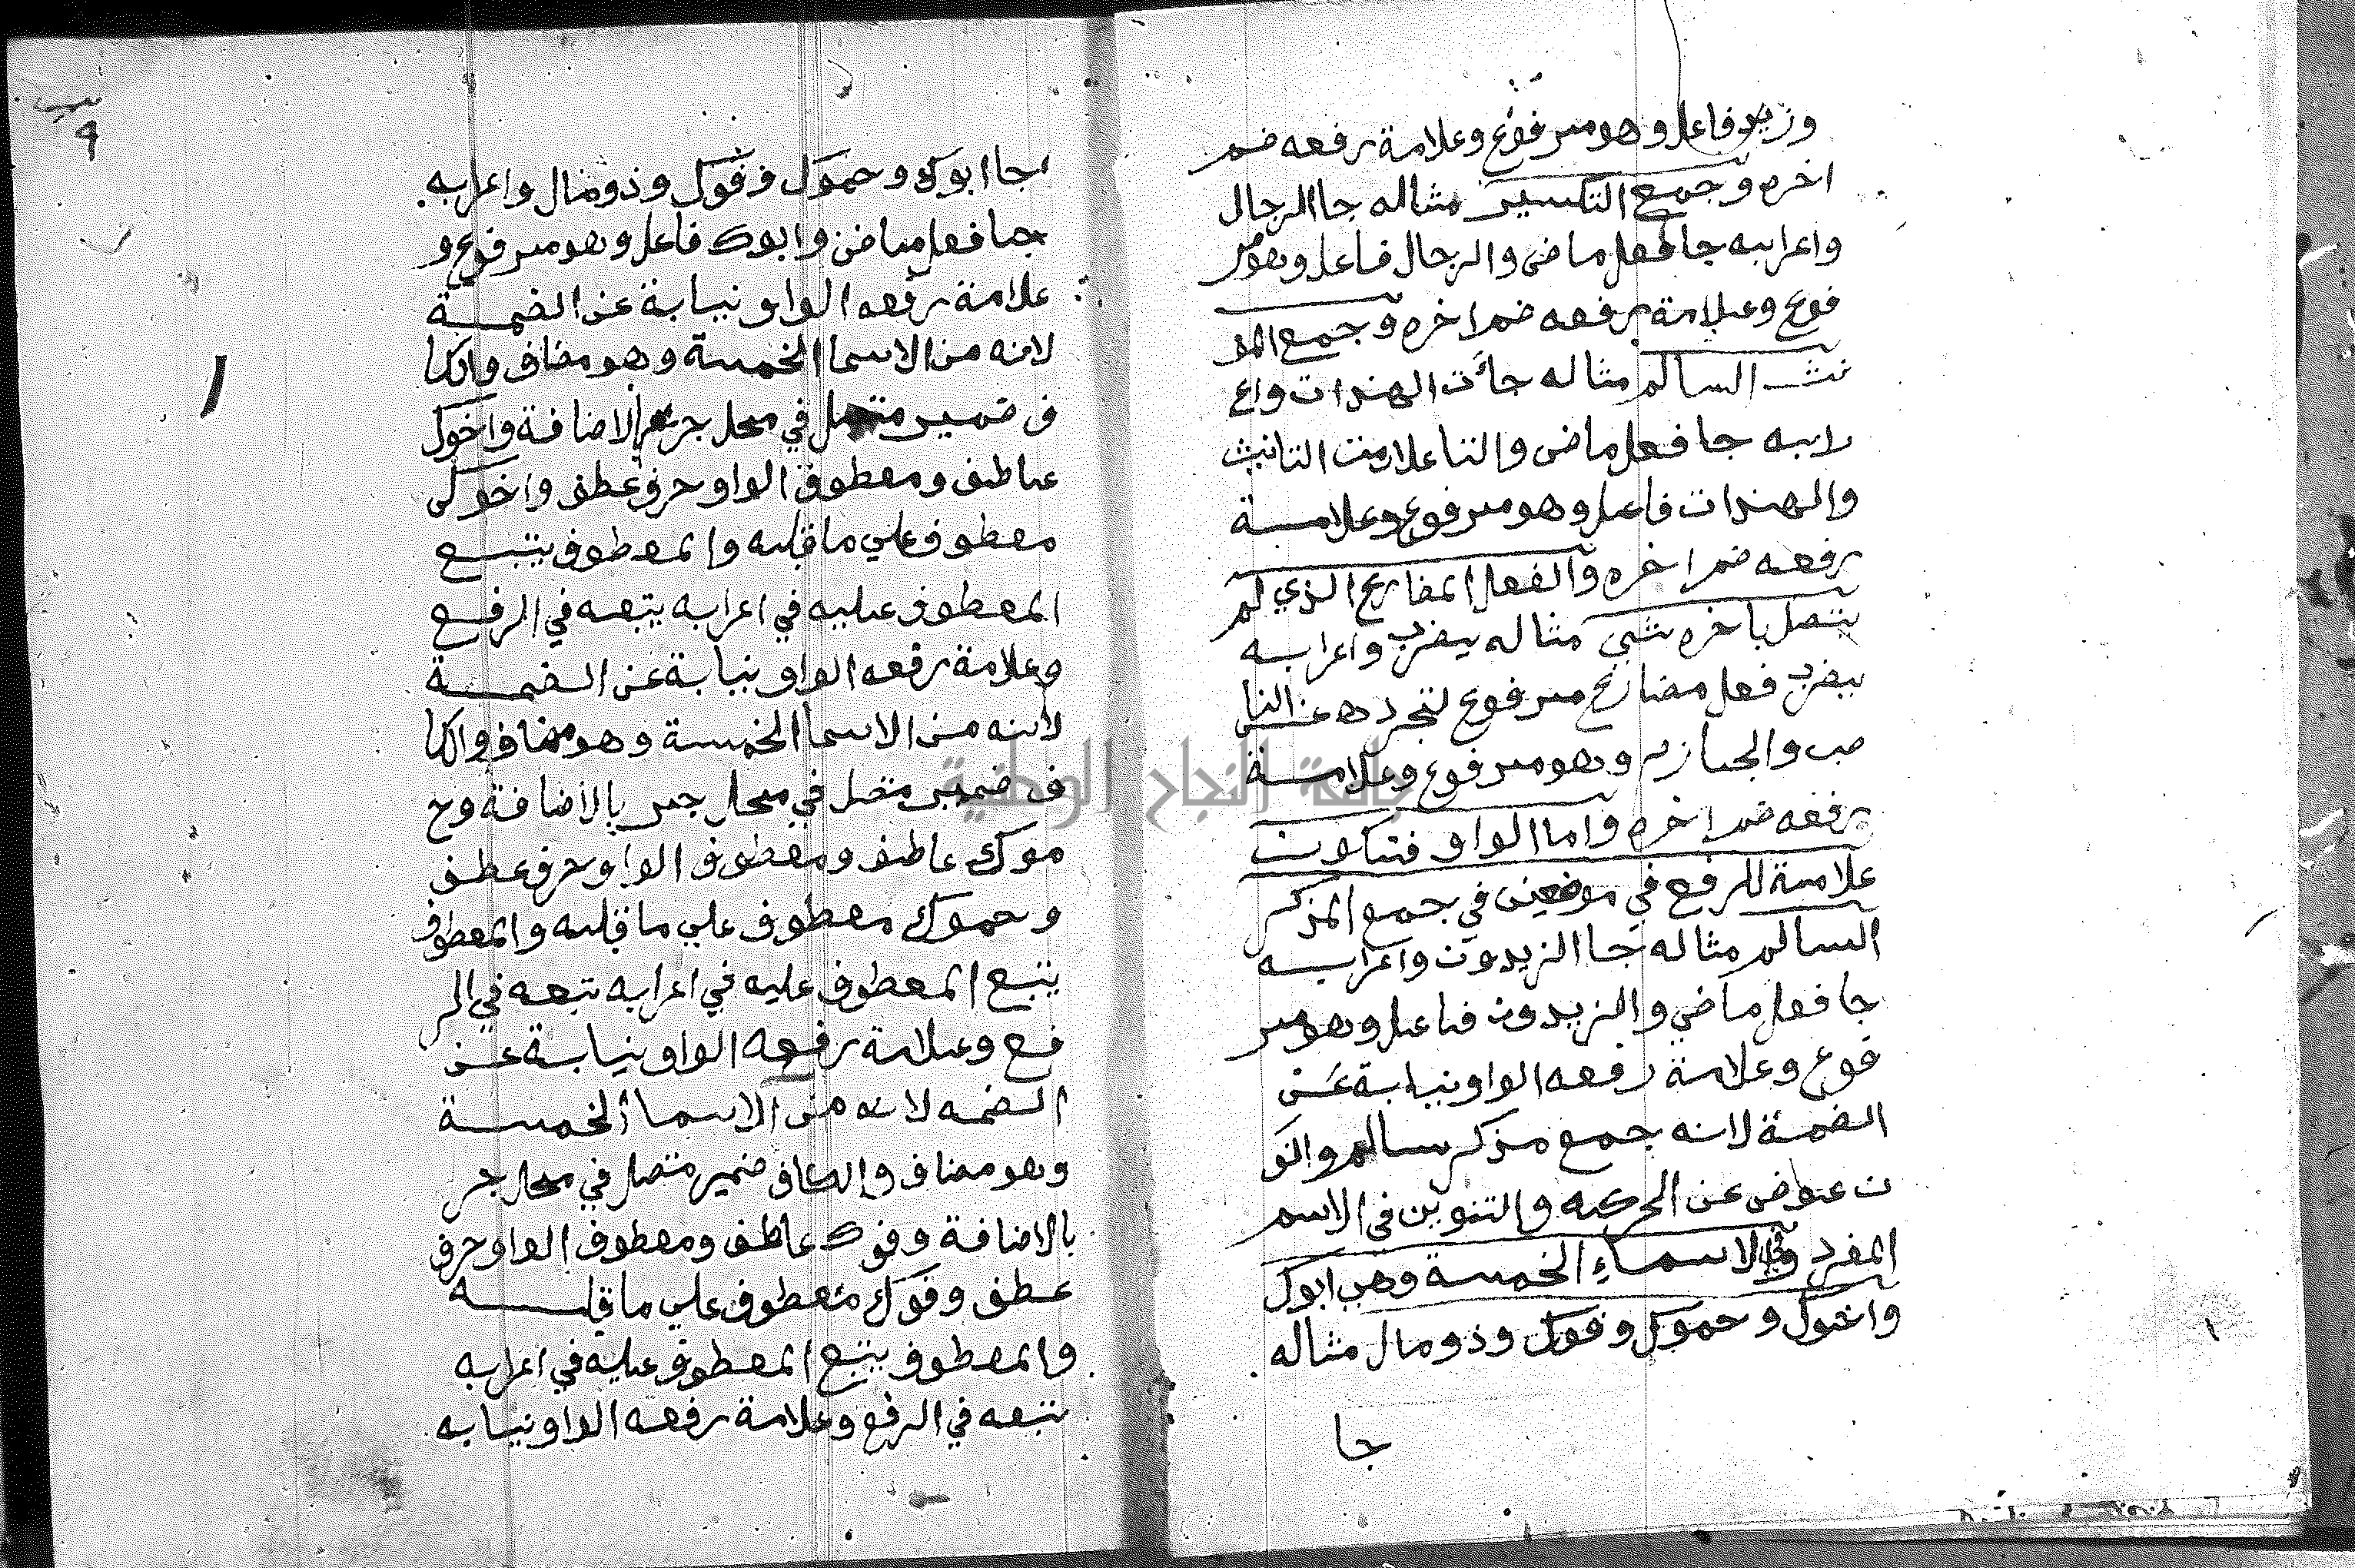 وزيد فاعل وهو مرفوع وعلامة رفعه ضم
اخره وجمع التكسير مثاله جا الرجال
واعرابه جا فعل ماضى والرجال فاعل وهو مر
فوع وعلامة رفعه ضم اخره وجمع المؤ
نث السالم مثاله جائت الهندات واع
رابه جا فعل ماضى والتا علامت التانيث
والهندات فاعل وهو مرفوع وعلامة
رفعه ضم اخره والفعل المضارع الذي لم
يتصل باخره شي مثاله يضرب واعرابه
يضرب فعل مضارع مرفوع لتجرده عن النا
صب والجازم وهو مرفوع وعلامة
رفعه ضم اخره واما الواو فتكون
علامة للرفع في موضعين في جمع المذكر
السالم مثاله جا الزيدون واعرابه
جا فعل ماضي والزيدون فاعل وهو مر
فوع وعلامة رفعه الواو نيابة عن
الضمة لانه جمع مذكر سالم والنو
ن عوض عن الحركه والتنوين في الاسم
المفرد وفي الاسماء الخمسة وهي ابوك
واخوك وحموك وفوك وذو مال مثاله
جا
٩
جا ابوك وحموك وفوك وذو مال واعرابه
جا فعل ماضى وابوك فاعل وهو مرفوع و
علامة رفعه الواو نيابة عن الضمة
لانه من الاسما الخمسة وهو مضاف والكا
ف ضمير متصل في محل جر بالاضافة واخوك
عاطف ومعطوف الواو حرف عطف واخوك
معطوف علي ما قبله والمعطوف يتبع
المعطوف عليه في اعرابه يتبعه في الرفع
وعلامة رفعه الواو نيابة عن الضمة
لانه من الاسما الخمسة وهو مضاف والكا
ف ضمير متصل في محل جر بالاضافة وح
موك عاطف ومعطوف الواو حرف عطف
وحموك معطوف علي ما قبله والمعطوف
يتبع المعطوف عليه في اعرابه تبعه في الر
فع وعلامة رفعه الواو نيابة عن
الضمه لانه من الاسما الخمسة
وهو مضاف والكاف ضمير متصل في محل جر
بالاضافة وفوك عاطف ومعطوف الواو حرف
عطف وفوك معطوف علي ما قبله
والمعطوف يتبع المعطوف عليه في اعرابه
يتبعه في الرفع وعلامة رفعه الواو نيابه
جامعة النجاح الوطنية